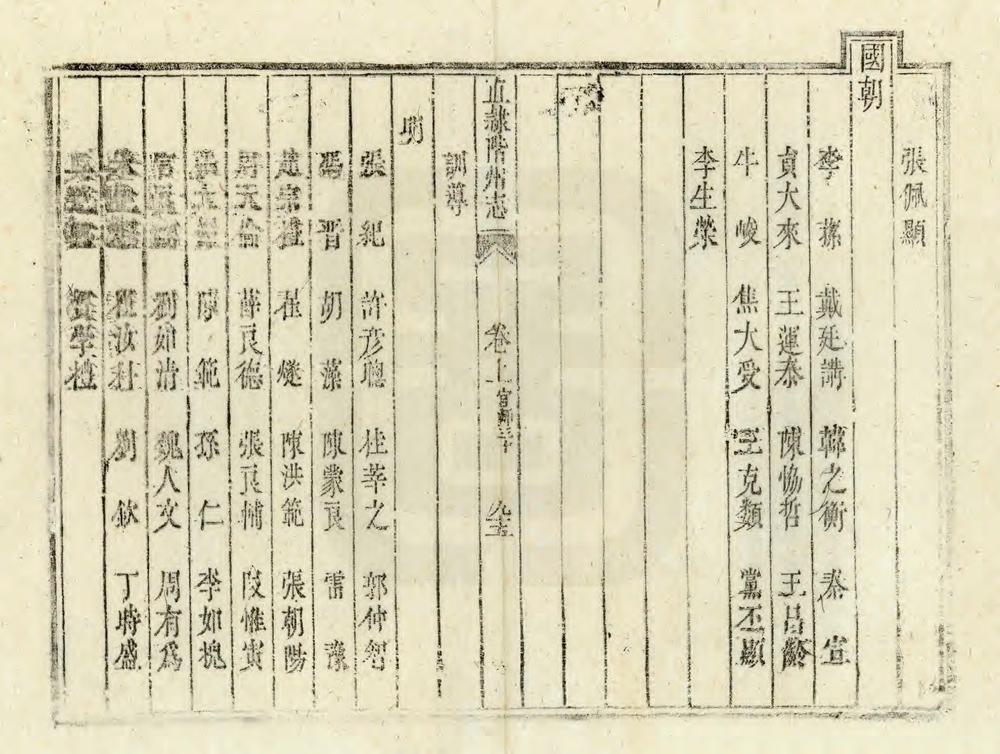 張佩顯
國朝
李蓀　戴廷講　韓之衡　秦宣
貢大來　王運泰　陳恊哲　王昌齡
牛峻　焦大受　王克類　黨丕顯
李生榮
直隸階州志　卷上　官師　九十五
訓導
明
張紀　許彦聰　桂莘之　郭仲
馮晋　胡藻　陳蒙良　雷豫
趙宗禮　崔燧　陳洪範　張朝陽
薛良德　張良輔　段惟寅
陳範　孫仁　李如槐
劉如清　魏人文　周有爲
杜汝材　劉欽　丁時盛
學禮